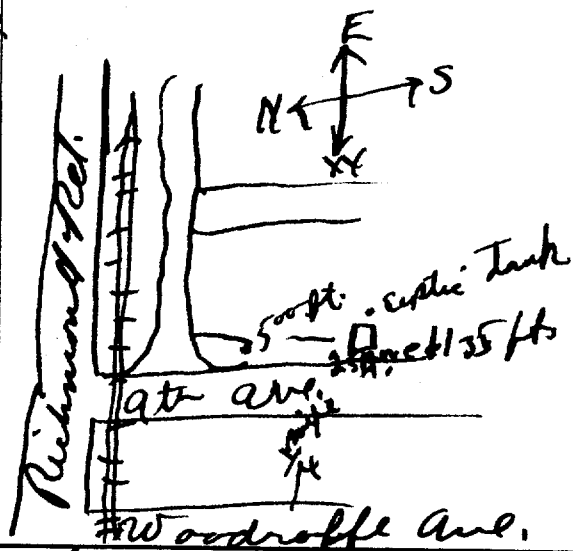 E
N S
W
Richmond Rd.
500 ft. septic Tank
25 ft. 135 ft
9th Ave.
1/4 mile
Woodroffe Ave.